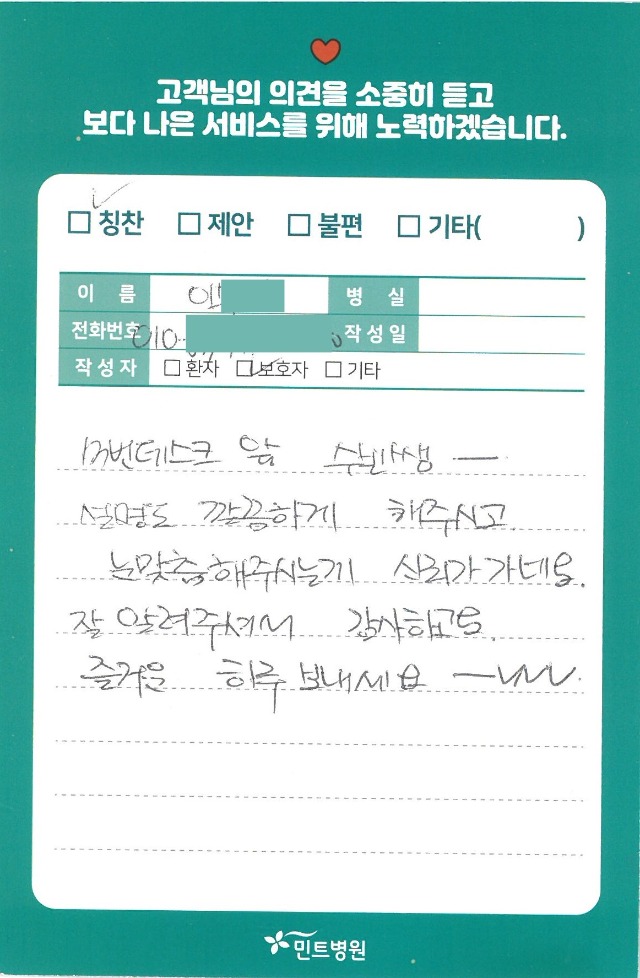 고객님의 의견을 소중히 듣고
보다 나은 서비스를 위해 노력하겠습니다.
칭찬 제안 불편 기타( )
이 름 병 실
전화번호 010- 작성일
작성자 환자 보호자 기타
번데스크 앞
설명도 깔끔하게 해주시고
눈맞춤해주시는게 신뢰가 가네요.
잘 알려주셔서 감사하고요.
즐거운 하루 보내세요
민트병원